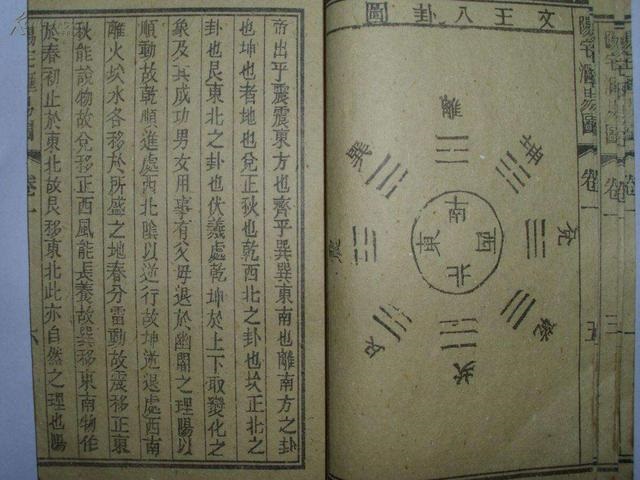 文王八卦圖
離
坤
兌
乾
坎
艮
震
巽
南
西
北
東
卷一
五
帝出乎震震東方也齊乎巽巽東南也離南方之卦
也坤也者地也兌正秋也乾西北之卦也坎正北之
卦也艮東北之卦也伏羲處乾坤於上下取變化之
象及其成功男女用事有父母退於幽閒之理陽以
順動故乾順進處西北陰以逆行故坤逆退處西南
離火坎水各移於所盛之地春分雷動故震移正東
秋能說物故兌移正西風能長養故巽移東南物作
於春初止於東北故艮移東北此亦自然之理也陽
卷一
六